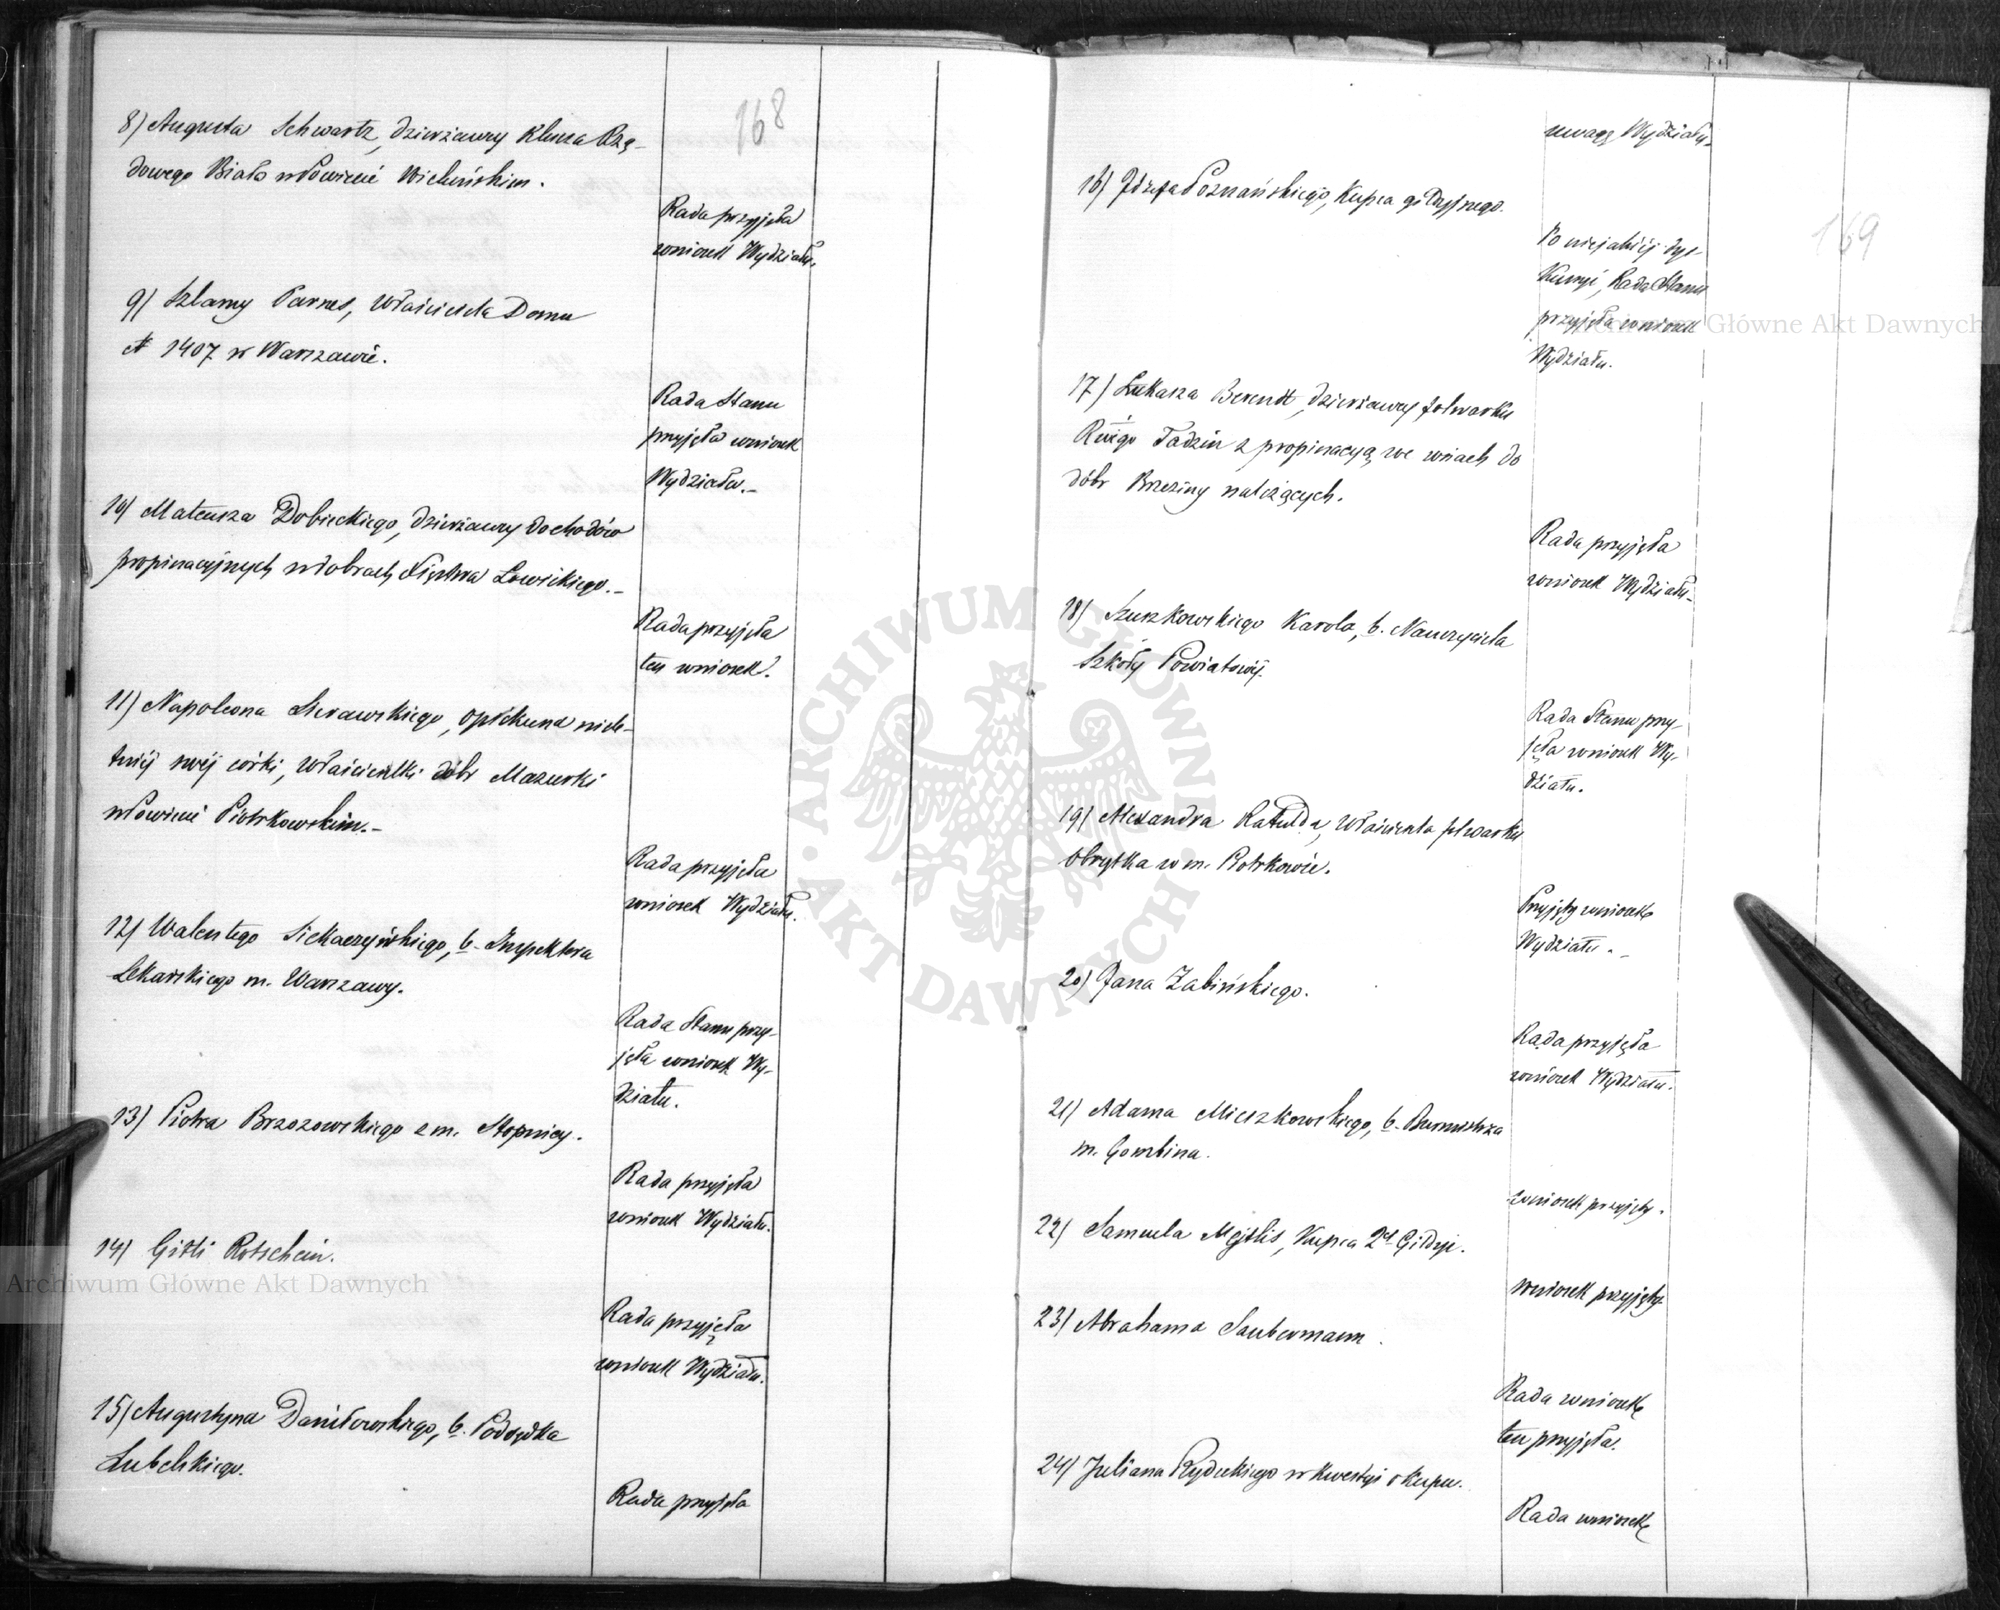 168
8) Augusta Schwartz, dzierżawcy Klucza Rzą-
dowego Biała w Powiecie Wieluńskim.
Rada przyjęła
wniosek Wydziału.
9) Szlamy Parnes, Właściciela Domu
N 1407 w Warszawie.
Rada Stanu
przyjęła wniosek
Wydziału.-
10) Mateusza Dobieckiego, dzierżawcy dochodów
propinacyjnych w dobrach Księstwa Łowickiego.-
Rada przyjęła
ten wniosek.
11) Napoleona Sierawskiego, opiekuna niele-
tniéj swéj córki, Właścicielki dóbr Mazurki
w Powiecie Piotrkowskim.-
Rada przyjęła
wniosek Wydziału.
12) Walentego Siekaczyńskiego, b. Inspektora
Lekarskiego m. Warszawy.
Rada Stanu przy-
jęła wniosek Wy-
działu.
13) Piotra Brzozowskiego z m. Stopnicy.
Rada przyjęła
wniosek Wydziału.
14) Gitli Rotschein.
Rada przyjęła
wniosek Wydziału.
15) Augustyna Daniłowskiego, b. Podsędka
Lubelskiego.
Rada przyjęła
169
uwagę Wydziału.
16) Józefa Poznańskiego, Kupca gildyjnego.
Po niejakiéj dys-
kussyi, Rada Stanu
przyjęła wniosek
Wydziału.
17) Łukasza Berendt, dzierżawcy folwarku
Rżigo Tadzin z propinacyą we wsiach do
dóbr Brzeziny należących.
Rada przyjęła
wniosek Wydziału.
18) Szuszkowskiego Karola, b. Nauczyciela
Szkoły Powiatowéj.
Rada Stanu przy-
jęła wniosek Wy-
działu.
19) Alexandra Ratulda, Właściciela folwarku
Obrytka w m. Piotrkowie.
Przyjęty wniosek
Wydziału.-
20) Jana Zabińskiego.
Rada przyjęła
wniosek Wydziału.
21) Adama Mieszkowskiego, b. Burmistrza
m. Gombina.
wniosek przyjęty.
22) Samuela Mejtlis, Kupca 2éj Gildyi.
wniosek przyjęty
23) Abrahama Saubermann.
Rada wniosek
ten przyjęła.
24) Juliana Rydeckiego w kwestyi okupu.
Rada wniosek
ARCHIWUM GŁÓWNE AKT DAWNYCH
Archiwum Główne Akt Dawnych
Archiwum Główne Akt Dawnych